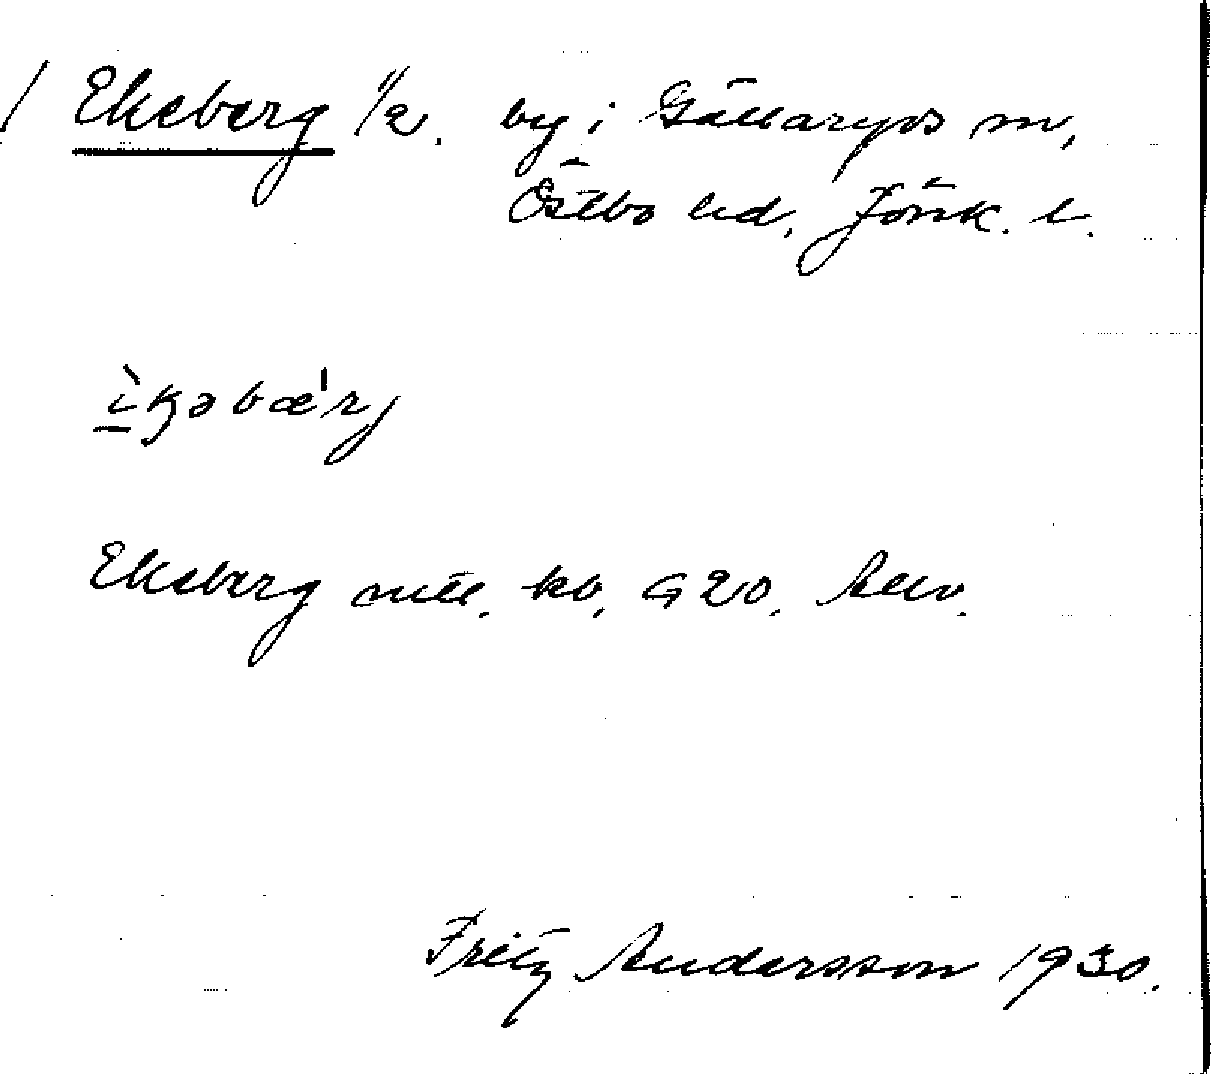 / Ekeberg 1/2. by i Gällaryds sn,
Östbo hd, Jönk. l.
ìkəbæ'rj
Ekeberg mtl. kb, G20. Allm.
Fritz Andersson 1930.